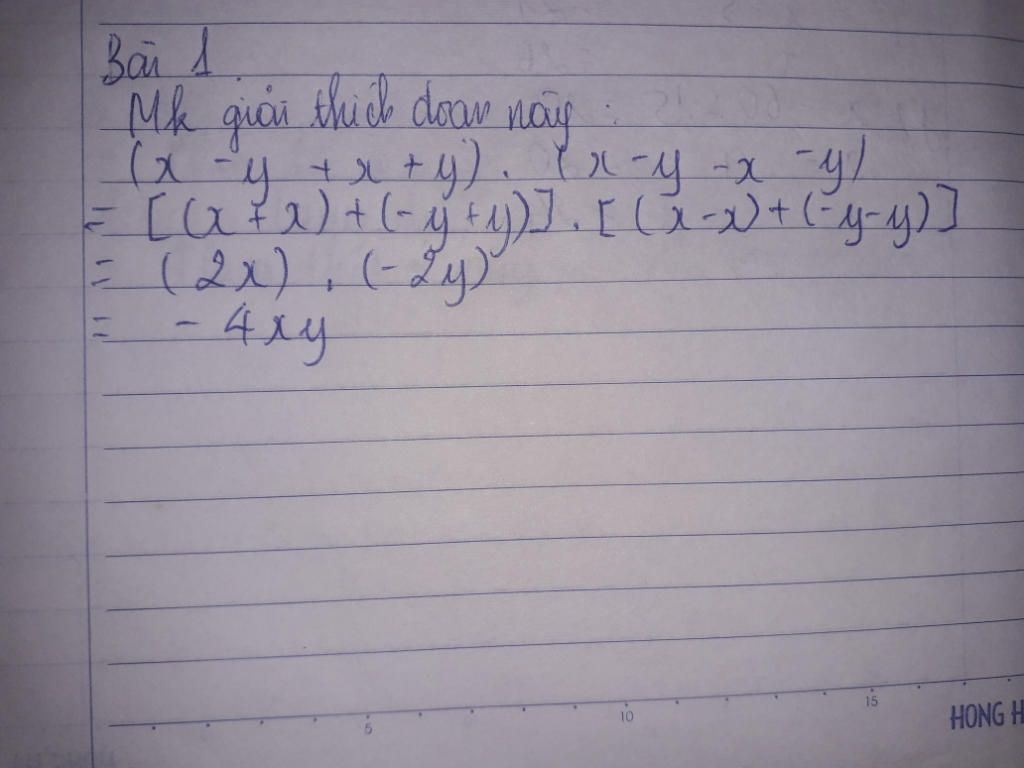 Bài 1
Mk giải thích đoạn này :
(x - y + x + y) . (x - y - x - y)
= [(x + x) + (-y + y)] . [(x - x) + (-y - y)]
= (2x) . (-2y)
= - 4xy
5 10 15
HONG H